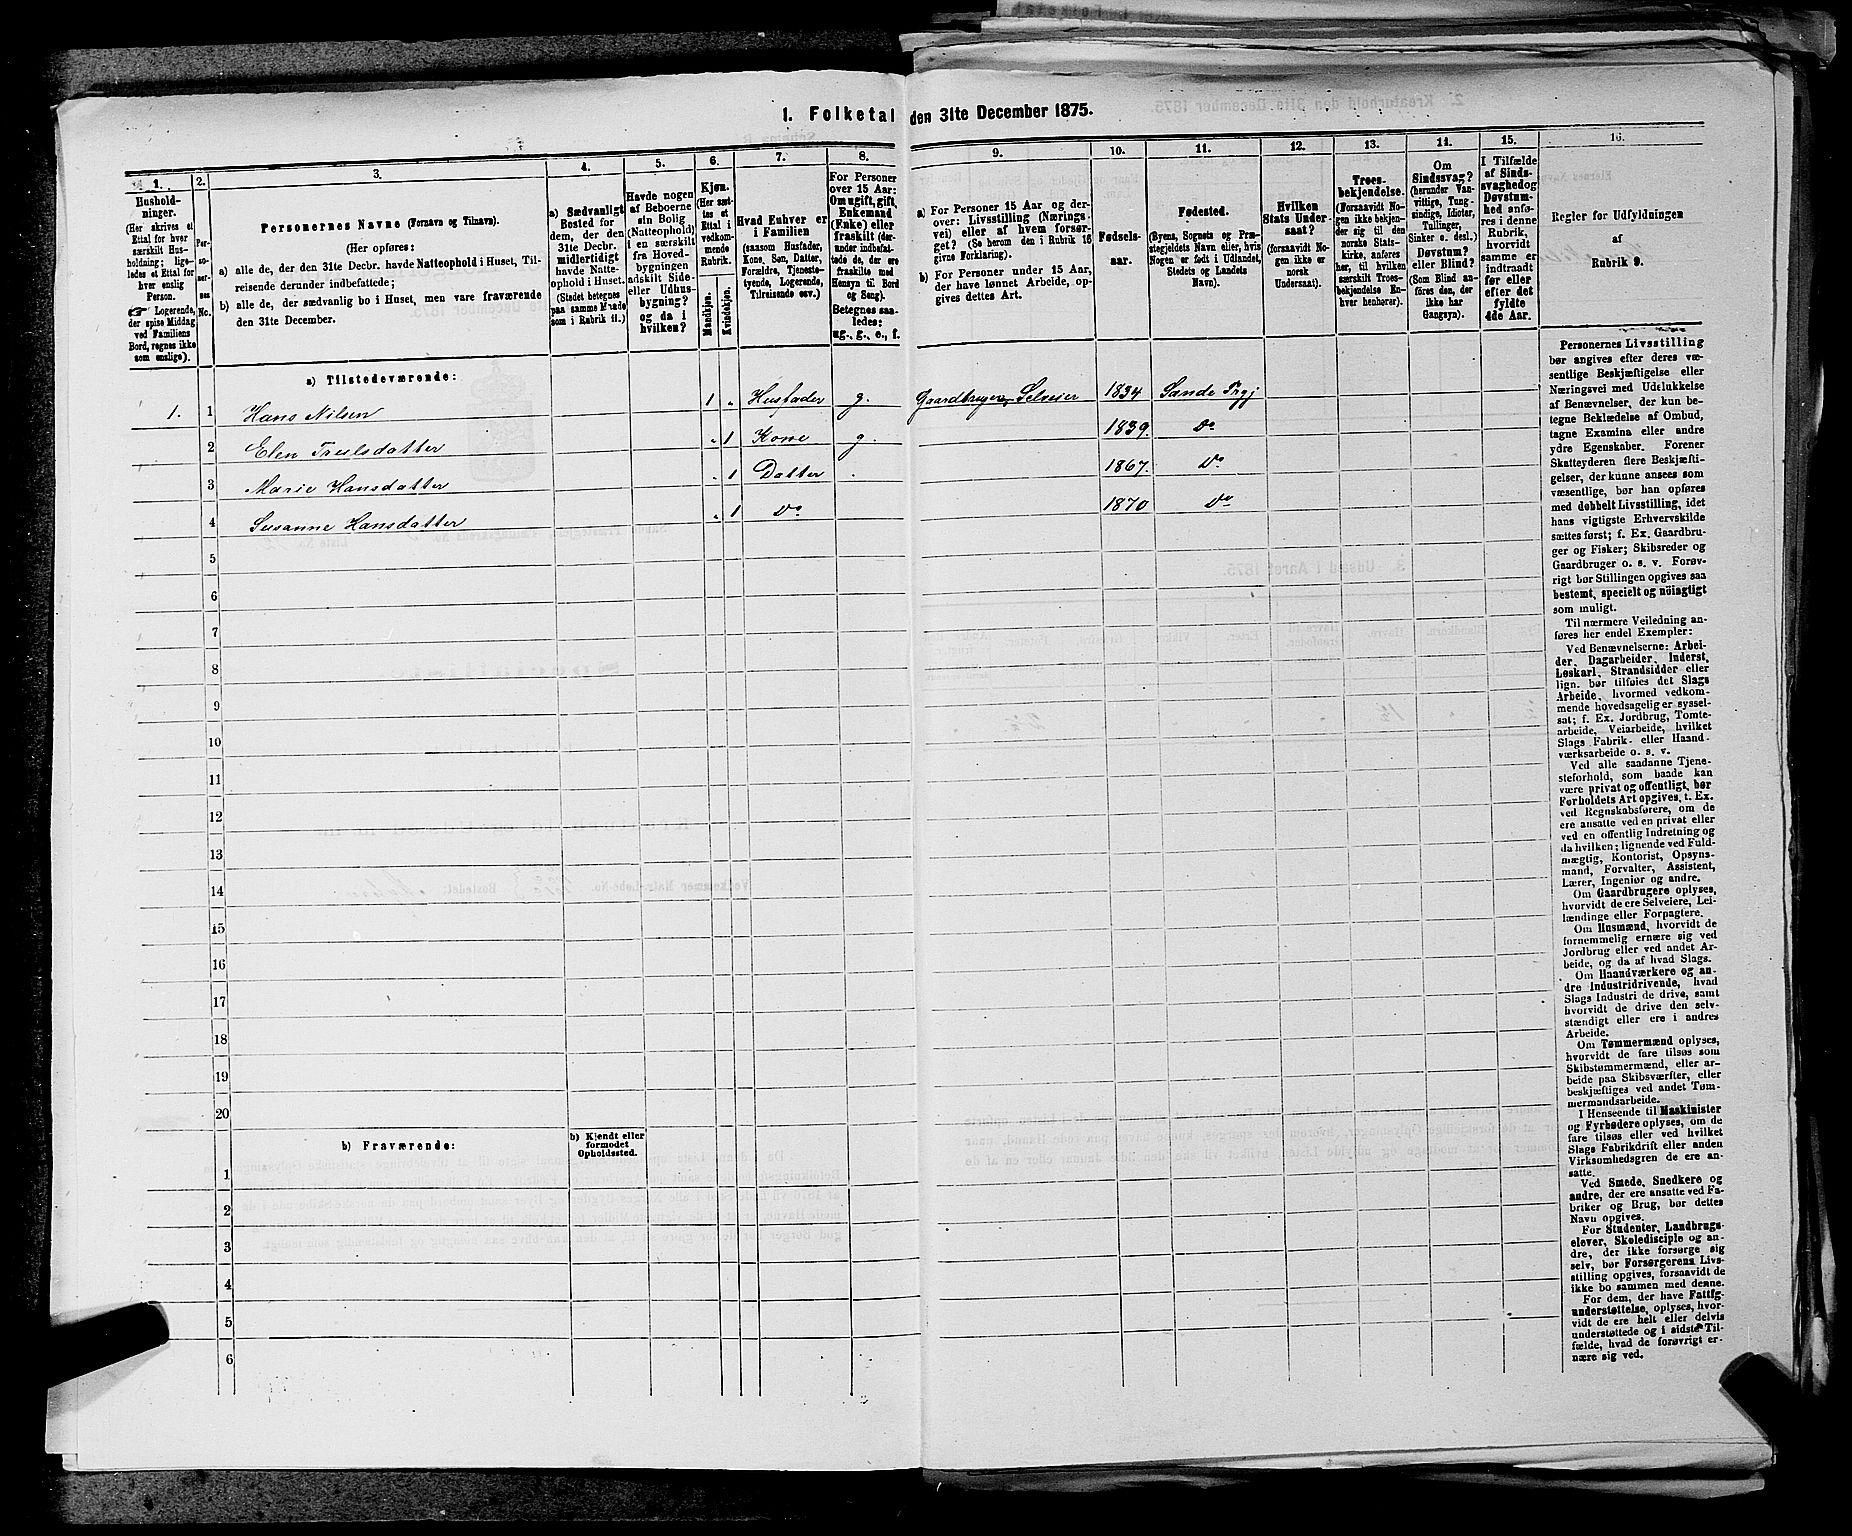 1. Folketal den 31te December 1875.
1.
Hushold-
ninger.
(Her skrives et
Ettal for hver
særskilt Hus-
holdning; lige-
ledes et Ettal for
hver enslig
Person.
☞ Logerende,
der spise Middag
ved Familiens
Bord, regnes ikke
som enslige).
2.
Per-
so-
ner-
nes
No.
3.
Personernes Navne (Fornavn og Tilnavn).
(Her opføres:
a) alle de, der den 31te Decbr. havde Natteophold i Huset, Til-
reisende derunder indbefattede;
b) alle de, der sædvanlig bo i Huset, men vare fraværende
den 31te December.
4.
a) Sædvanligt
Bosted for
dem, der den
31te Decbr.
midlertidigt
havde Natte-
ophold i Huset.
(Stedet betegnes
paa samme Maade
som i Rubrik 11.)
5.
Havde nogen
af Beboerne
sin Bolig
(Natteophold)
i en særskilt
fra Hoved-
bygningen
adskilt Side-
eller Udhus-
bygning?
og da i
hvilken?
6.
Kjøn.
(Her sæt-
tes et
Ettal i
vedkom-
mende
Rubrik.
Mandkjøn.
Kvindekjøn.
7.
Hvad Enhver er
i Familien
(saasom Husfader,
Kone, Søn, Datter,
Forældre, Tjeneste-
tyende, Logerende,
Tilreisende osv.)
8.
For Personer
over 15 Aar:
Om ugift, gift,
Enkemand
(Enke) eller
fraskilt (der-
under indbefat-
tede de, der ere
fraskilte med
Hensyn til Bord
og Seng).
Betegnes saa-
ledes:
ug., g., e., f.
9.
a) For Personer 15 Aar og der-
over: Livsstilling (Nærings-
vei) eller af hvem forsør-
get? (Se herom den i Rubrik 16
givne Forklaring).
b) For Personer under 15 Aar,
der have lønnet Arbeide, op-
gives dettes Art.
10.
Fødsels-
aar.
11.
Fødested.
(Byens, Sognets og Præ-
stegjeldets Navn eller, hvis
Nogen er født i Udlandet,
Stedets og Landets
Navn).
12.
Hvilken
Stats Under-
saat?
(forsaavidt No-
gen ikke er
norsk
Undersaat).
13.
Troes-
bekjendelse.
(Forsaavidt No-
gen ikke bekjen-
der sig til den
norske Stats-
kirke, anføres
her, til hvilken
særskilt Troes-
bekjendelse En-
hver henhører).
14.
Om
Sindssvag?
(herunder Van-
vittige, Tung-
sindige, Idioter,
Tullinger,
Sinker o. desl.)
Døvstum?
eller Blind?
(Som Blind an-
føres den, der
ikke har
Gangsyn).
15.
I Tilfælde
af Sinds-
svaghed og
Døvstum-
hed anfø-
res i denne
Rubrik,
hvorvidt
samme er
indtraadt
før eller
efter det
fyldte
4de Aar.
16.
Regler for Udfyldningen
af
Rubrik 9.
a) Tilstedeværende:
1. 1 Hans Nilsen 1 „ Husfader g. Gaardbruger Selveier 1834 Sande Prgj
2 Elen Trulsdatter „ 1 Kone g. 1839. Do
3 Marie Hansdatter „ 1 Datter . 1867. Do
4 Susanne Hansdatter „ 1 Do 1870 Do
5
6
7
8
9
10
11
12
13
14
15
16
17
18
19
20
b) Fraværende:
b) Kjendt eller
formodet
Opholdssted.
1
2
3
4
5
6
Personernes Livsstilling
bør angives efter deres væ-
sentlige Beskjæftigelse eller
Næringsvei med Udelukkelse
af Benævnelser, der kun be-
tegne Beklædelse af Ombud,
tagne Examina eller andre
ydre Egenskaber. Forener
Skatteyderen flere Beskjæfti-
gelser, der kunne ansees som
væsentlige, bør han opføres
med dobbelt Livsstilling, idet
hans vigtigste Erhvervskilde
sættes først; f. Ex. Gaardbru-
ger og Fisker; Skibsreder og
Gaardbruger o. s. v. Forøv-
rigt bør Stillingen opgives saa
bestemt, specielt og nöiagtigt
som muligt.
Til nærmere Veiledning an-
føres her endel Exempler:
Ved Benævnelserne: Arbei-
der, Dagarbeider, Inderst,
Løskarl, Strandsidder eller
lign. bør tilføies det Slags
Arbeide, hvormed vedkom-
mende hovedsagelig er syssel-
sat; f. Ex. Jordbrug, Tomte-
arbeide, Veiarbeide, hvilket
Slags Fabrik- eller Haand-
værksarbeide o. s. v.
Ved alle saadanne Tjene-
steforhold, som baade kan
være privat og offentligt, bør
Forholdets Art opgives, t. Ex.
ved Regnskabsførere, om de
ere ansatte ved en privat eller
ved en offentlig Indretning og
da hvilken; lignende ved Fuld-
mægtig, Kontorist, Opsyns-
mand, Forvalter, Assistent,
Lærer, Ingeniør og andre.
Om Gaardbrugere oplyses,
hvorvidt de ere Selveiere, Lei-
lændinge eller Forpagtere.
Om Husmænd, hvorvidt de
fornemmelig ernære sig ved
Jordbrug eller ved andet Ar-
beide, og da af hvad Slags.
Om Haandværkere og an-
dre Industridrivende, hvad
Slags Industri de drive, samt
hvorvidt de drive den selv-
stændigt eller ere i andres
Arbeide.
Om Tømmermænd oplyses,
hvorvidt de fare tilsøs som
Skibstømmermænd, eller ar-
beide paa Skibsværfter, eller
beskjæftiges ved andet Tøm-
mermandsarbeide.
I Henseende til Maskinister
og Fyrbødere oplyses, om de
fare tilsøs eller ved hvilket
Slags Fabrikdrift eller anden
Virksomhedsgren de ere an-
satte.
Ved Smede, Snedkere og
andre, der ere ansatte ved Fa-
briker og Brug, bør dettes
Navn opgives.
For Studenter, Landbrugs-
elever, Skoledisciple og an-
dre, der ikke forsørge sig
selv, bør Forsørgerens Livs-
stilling opgives, forsaavidt de
ikke bo sammen med denne.
For dem, der have Fattig-
understøttelse, oplyses, hvor-
vidt de ere helt eller delvis
understøttede og i sidste Til-
fælde, hvad de forøvrigt er-
nære sig ved.